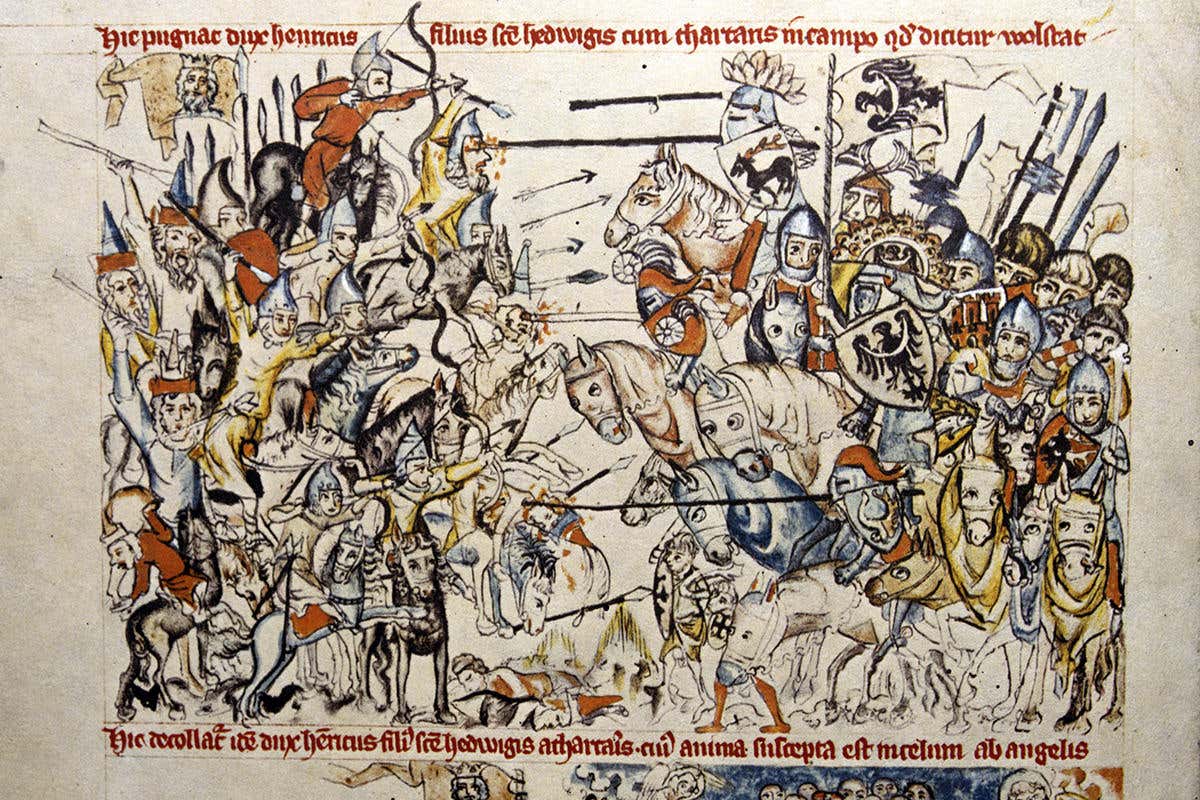 Hic pugnat dux henricus filius sce hedwigis cum thartaris in campo qd dicitur wolstat
Hic decollat ide dux henricus fili sce hedwigis a thartais. cui anima suscepta est in celum ab angelis